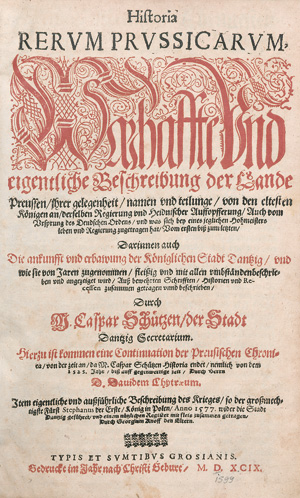 Historia
RERVM PRVSSICARVM,
Warhaffte Vnd
eigentliche Beschreibung der Lande
Preussen/ Jhrer gelegenheit/ namen vnd teilunge/ von den eltesten
Königen an/ derselben Regierung vnd Heidnischer Auffopfferung/ Auch vom
Vrsprung des Deudschen Ordens/ vnd was sich bey eines jeglichen Hohmeisters
leben vnd Regierung zugetragen hat/ Vom ersten biß zum letzten/
Darinnen auch
Die ankunfft vnd erbawung der Königlichen Stadt Dantzig/ vnd
wie sie von Jaren zugenommen/ fleißig vnd mit allen vmbstenden beschrie-
ben vnd angezeiget wird/ Auß bewehrten Schrifften/ Historien vnd Re-
cessen zusammen getragen vnnd beschrieben/
Durch
M. Caspar Schützen/ der Stadt
Dantzig Secretarium.
Hierzu ist kommen eine Continuation der Preusischen Chroni-
ca/ von der zeit an/ da M. Caspar Schützen Historia endet/ nemlich von dem
1525. Jahr/ biß auff gegenwertige zeit/ Durch Herrn
D. Dauidem Chytræum.
Item eigentliche vnd außführliche Beschreibung des Krieges/ so der großmech-
tigste Fürst Stephanus der Erste/ König in Polen/ Anno 1577. wider die Stadt
Dantzig geführet/ vnd zusammen getragen/
Durch Georgium Knoff den Eltern.
TYPIS ET SVMTIBVS GROSIANIS.
Gedruckt im Jahr nach Christi Geburt/ M. D. XCIX.
1599